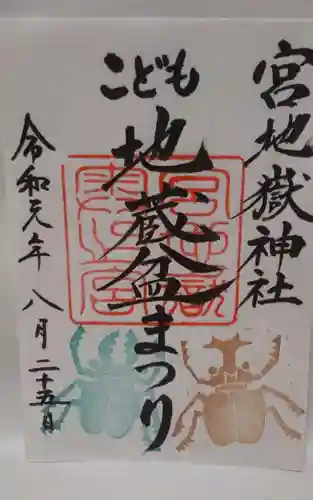 宮地嶽神社
こども
地蔵盆まつり
令和元年 八月二十五日